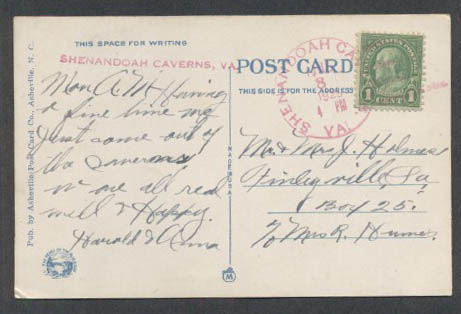 THIS SPACE FOR WRITING
SHENANDOAH CAVERNS, VA.
Mon. A.M. Having
a fine time we
just come out of
the Caverns
we are all real
well & Happy.
Harold & Anna
Pub. by Asheville Post Card Co., Asheville, N. C.
MADE IN U.S.A.
POST CARD
THIS SIDE IS FOR THE ADDRESS
SHENANDOAH CA
PM
VA.
UNITED STATES POSTAGE
1 CENT 1
Mr. & Mrs. J. Holmes
Finleyville, Pa
Box 25.
c/o Mrs R. Humes